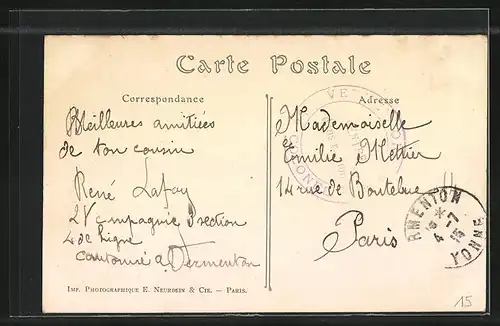 Carte Postale
Correspondance
Adresse
Meilleures amitiées
de ton cousin
René Lafay
2V Compagnie 3 section
4 de ligne
cantonné a Vermenton
Mademoiselle
Emilie Mettier
14 rue de Boutebrie
Paris
RMENTON
4 -7
15
YONNE
IMP. PHOTOGRAPHIQUE E. NEURDEIN & CIE. — PARIS.
15